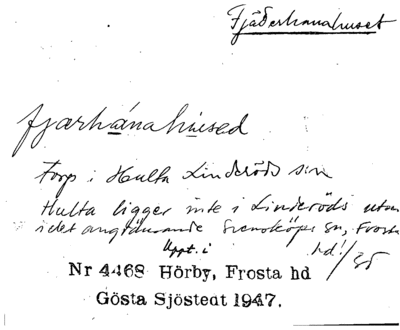 Fjäderhanahuset
fjærhánahúsed
Torp i Hulta Linderöds sn
Hulta ligger inte i Linderöds utan
i det angränsande Svensköps sn, Frosta
hd!/35
Uppt. i
Nr 4468 Hörby, Frosta hd
Gösta Sjöstedt 1947.